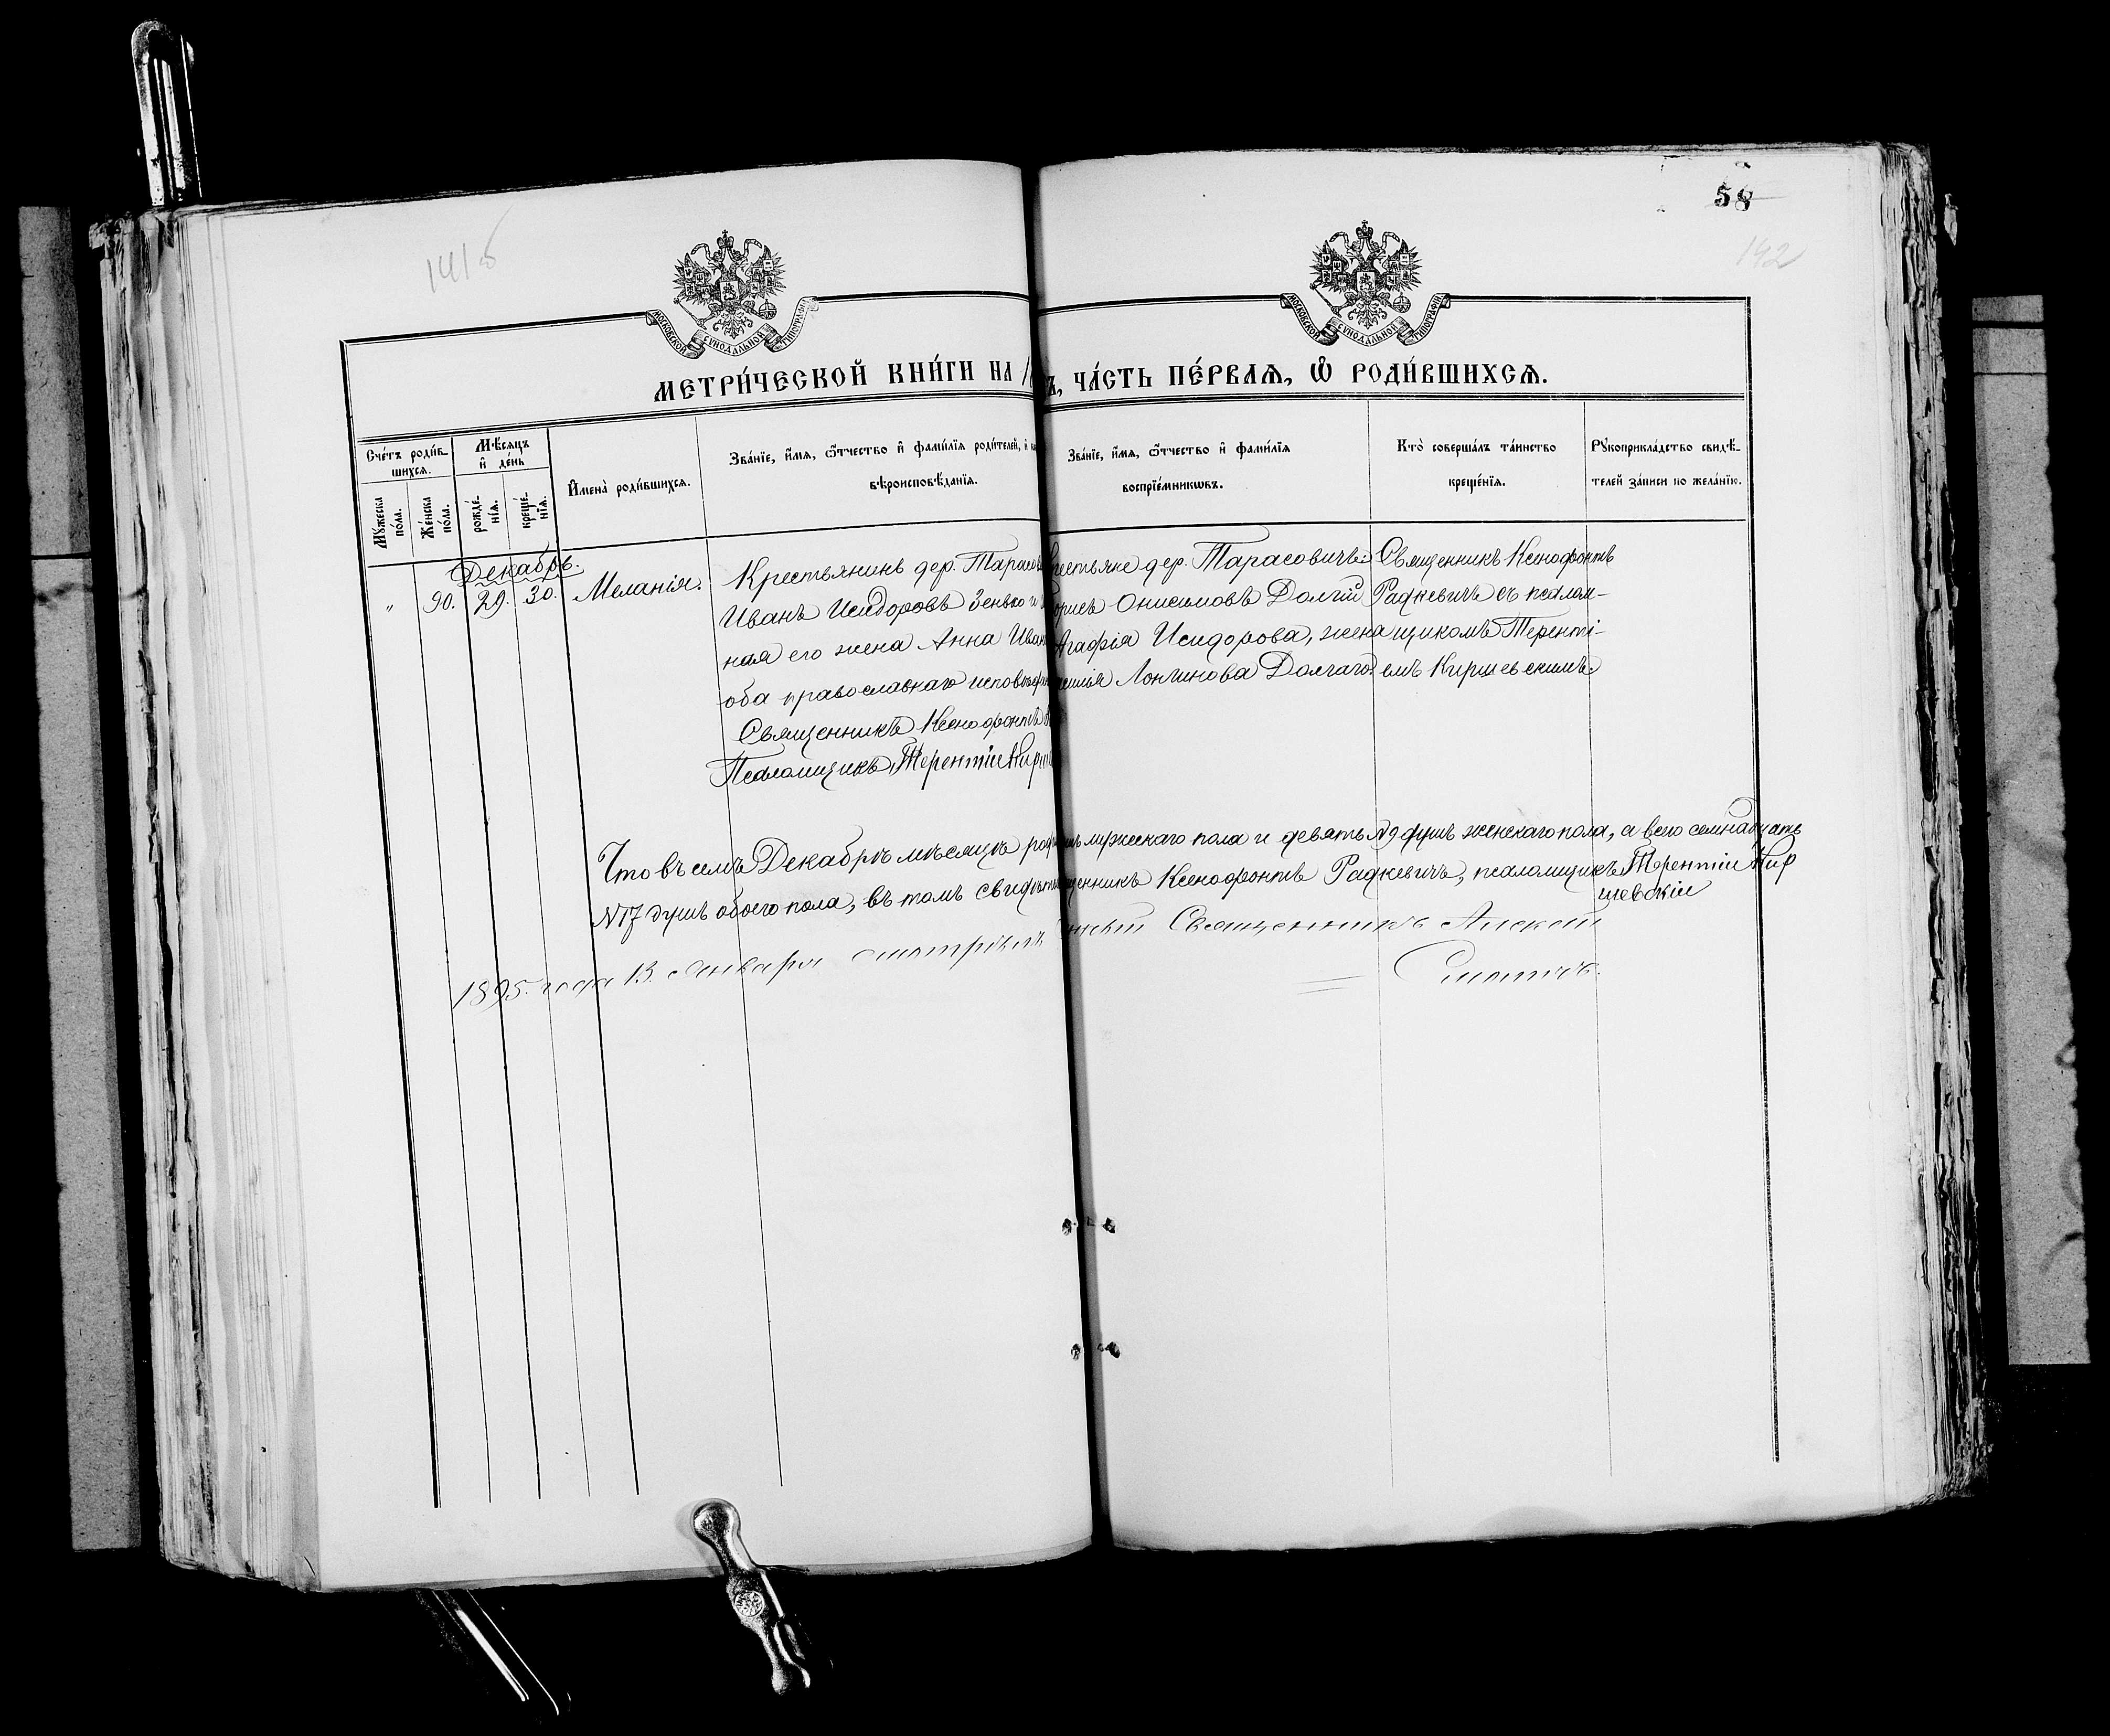 58
141 об
142
МОСКОВСКОЙ СУНОДАЛЬНОЙ ТИПОГРАФІИ
МОСКОВСКОЙ СУНОДАЛЬНОЙ ТИПОГРАФІИ
МЕТРИ́ЧЕСКОЙ КНИ́ГИ НА 18
Ъ, ЧА́СТЬ ПЕ́РВАѦ, Ѽ РОДИ́ВШИХСѦ.
Сче́тъ роди́в-
шихсѧ.
Мѣ́сѧцъ
и҆ де́нь
Мꙋ́жеска по́ла.
Же́нска по́ла.
рожде́-
нїѧ.
креще́-
нїѧ.
И҆мена̀ роди́вшихсѧ.
Зва́нїе, и҆́мѧ, ѻ҆́тчество и҆ фами́лїѧ роди́телей, и҆
вѣроисповѣ́данїѧ.
Зва́нїе, и҆́мѧ, ѻ҆́тчество и҆ фами́лїѧ
воспрїе́мникѡвъ.
Кто̀ соверша́лъ та́инство
креще́нїѧ.
Рꙋкоприкла́дство свидѣ́-
телей за́писи по жела́нїю.
Декабрь.
" 90. 29. 30. Меланія.
Крестьянинъ дер. Тарасов
Иванъ Исидоровъ Зенько и
ная его жена Анна Иван
оба православнаго исповѣд
Священникъ Ксенофонтъ
Псаломщикъ Терентій Кирш
рестьяне дер. Тарасовичъ:
орисъ Онисимовъ Долгій
Агафія Исидорова, жена
силія Лонгинова Долгаго.
Священникъ Ксенофонтъ
Радкевичъ съ псалом-
щикомъ Теренті-
емъ Киршевскимъ.
Что въ семъ Декабрѣ мѣсяцѣ род мужескаго пола и девять №9 душъ женскаго пола, а всего семнадцать
№17 душъ обоего пола, въ томъ свидѣт щенникъ Ксенофонтъ Радкевичъ, псаломщикъ Терентій Кир
шевскій
1895. года 13. Января смотрѣлъ Священникъ Алексѣй